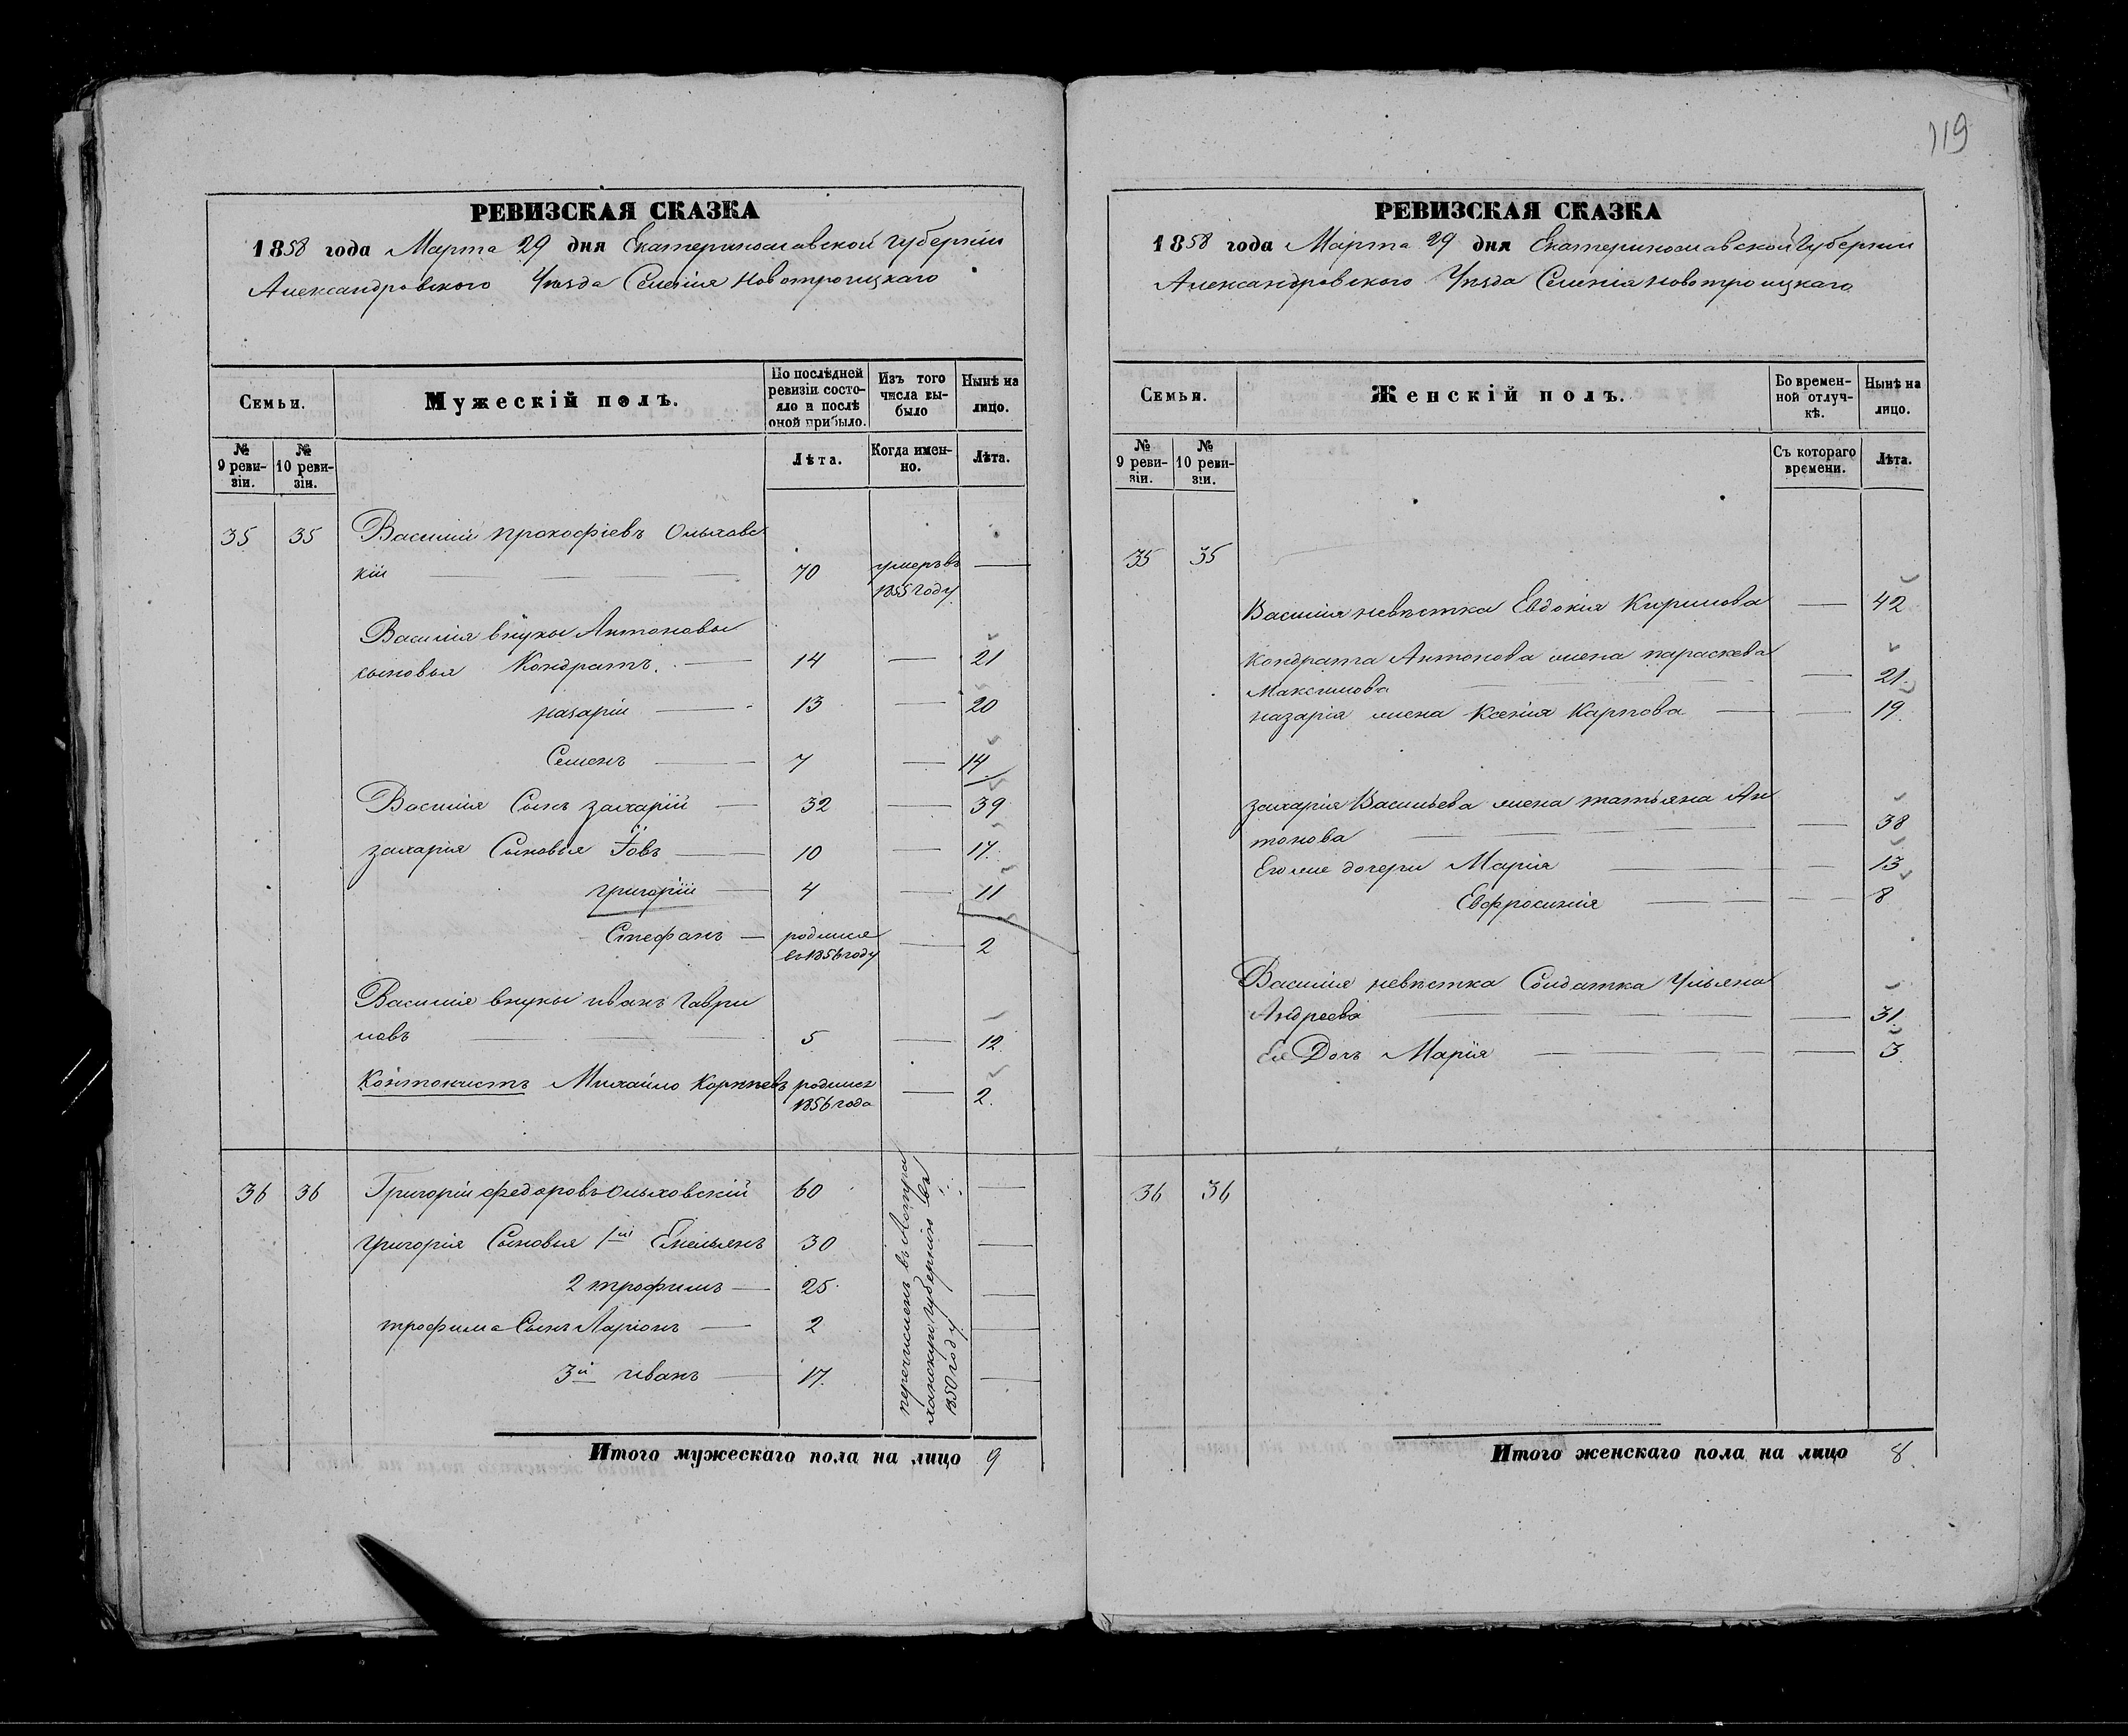 119
РЕВИЗСКАЯ СКАЗКА
1858 года Марта 29 дня Екатеринославской губерніи
Александровского Уѣзда Селенія Новотроицкаго
Семьи.
Мужескій полъ.
По послѣдней ревизіи состояло и послѣ оной прибыло.
Изъ того числа выбыло
Нынѣ на лицо.
№ 9 ревизіи.
№ 10 ревизіи.
Лѣта.
Когда именно.
Лѣта.
35 35 Василий прокофіевъ Ольховс
кіи 70 умеръ въ 1855 году —
Василія внуки Антоновы
сыновья Кондратъ. 14 — 21
назаріи 13 — 20
Семенъ 7 — 14
Василія Сынъ захарій 32 — 39
захарія Сыновья Іовъ 10 — 17
григоріи 4 — 11
Стефанъ родился въ 1856 году — 2
Василія внуки иванъ гаври
ловъ 5 — 12
Контонистъ Михайло родился 1856 года — 2.
36 36 Григоріи федоровъ Ольховскій 60 —
григорія Сыновья 1й Емельянъ 30 —
2 трофимъ 25 —
трофима Сынъ Ларіонъ 2 —
3й иванъ 17 —
перечисленъ въ Астра
ханскую губернию въ
1850 году
Итого мужескаго пола на лицо 9
РЕВИЗСКАЯ СКАЗКА
1858 года Марта 29 дня Екатеринославской Губерніи
Александровского Уѣзда Селенія Новотроицкаго
Семьи.
Женскій полъ.
Во временной отлучкѣ.
Нынѣ на лицо.
№ 9 ревизіи.
№ 10 ревизіи.
Съ котораго времени.
Лѣта.
35 35
Василія невѣстка Евдокія Кирилова — 42
Кондрата Антонова жена параскева
Максимова — 21
назарія жена Ксенія Карпова — 19
захарія Васильева жена татьяна Ан
тонова — 38
Его же дочери Марія — 13
Евфросинія — 8
Василія невѣстка Солдатка Ульяна
Андреева — 31
Ея Дочъ Марія — 3
36 36
Итого женскаго пола на лицо 8.